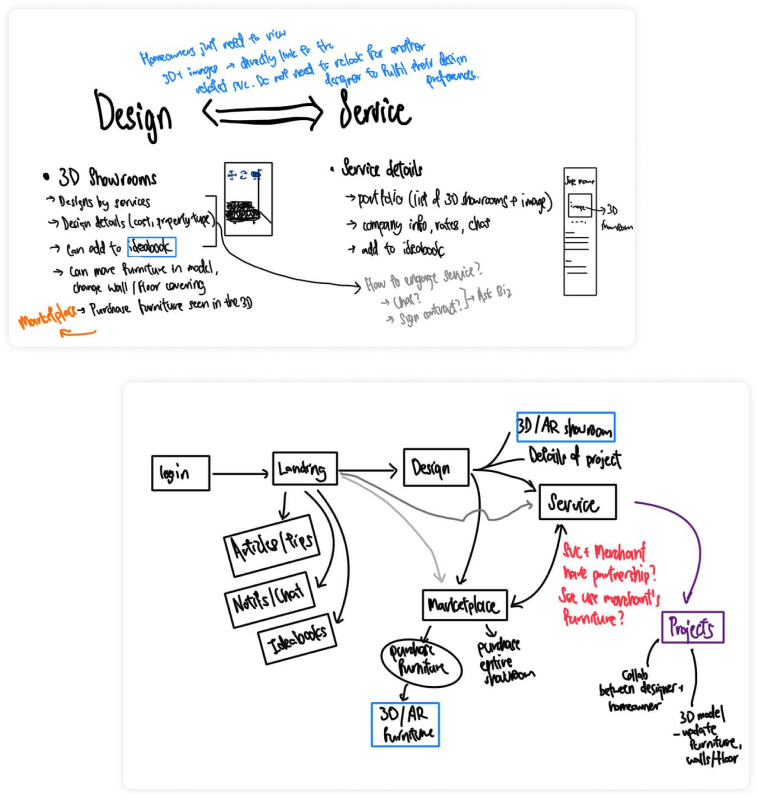 Homeowners just need to view
3D + images → directly link to the
related svc. Do not need to relook for another
designer to fulfil their design
preferences.
Design
Service
• 3D Showrooms
→ Designs by services
→ Design details (cost, property type)
→ Can add to ideabook
→ Can move furniture in model,
change wall / floor covering
Marketplace → Purchase furniture seen in the 3D
• Service details
→ portfolio (list of 3D showrooms + image)
→ company info, rates, chat
→ add to ideabook
How to engage service?
→ Chat?
→ Sign contract?
→ Ask Biz
name
image
→ 3D
login
Landing
Design
3D/AR showroom
Details of project
Service
Articles/Tips
Notifs/Chat
Ideabooks
Marketplace
Svc + Merchant
have partnership?
Svc use merchant's
furniture?
Projects
purchase
furniture
purchase
entire
showroom
3D/AR
furniture
Collab
between designer +
homeowner
3D model
- update
furniture,
walls/floor